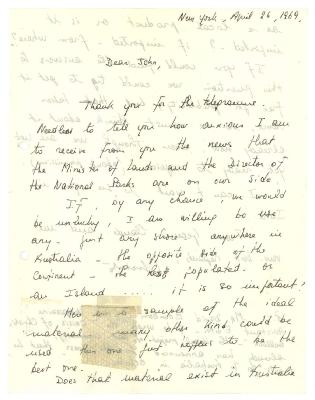 New York, April 26, 1969.
Dear John,
Thank you for the telegramme.
Needless to tell you how anxious I am
to receive from you the news that
the Minister of Lands and the Director of
the National Parks are on our side
If, by any chance, we would
be unlucky, I am willing to use
any - just any shore anywhere in
Australia - the opposite side of the
Continent - the populated. or
an Island ...... it is so important!
Here is a sample of the ideal
material many other kind could be
used this one just happens to be the
best one.
Does that material exist in Australia